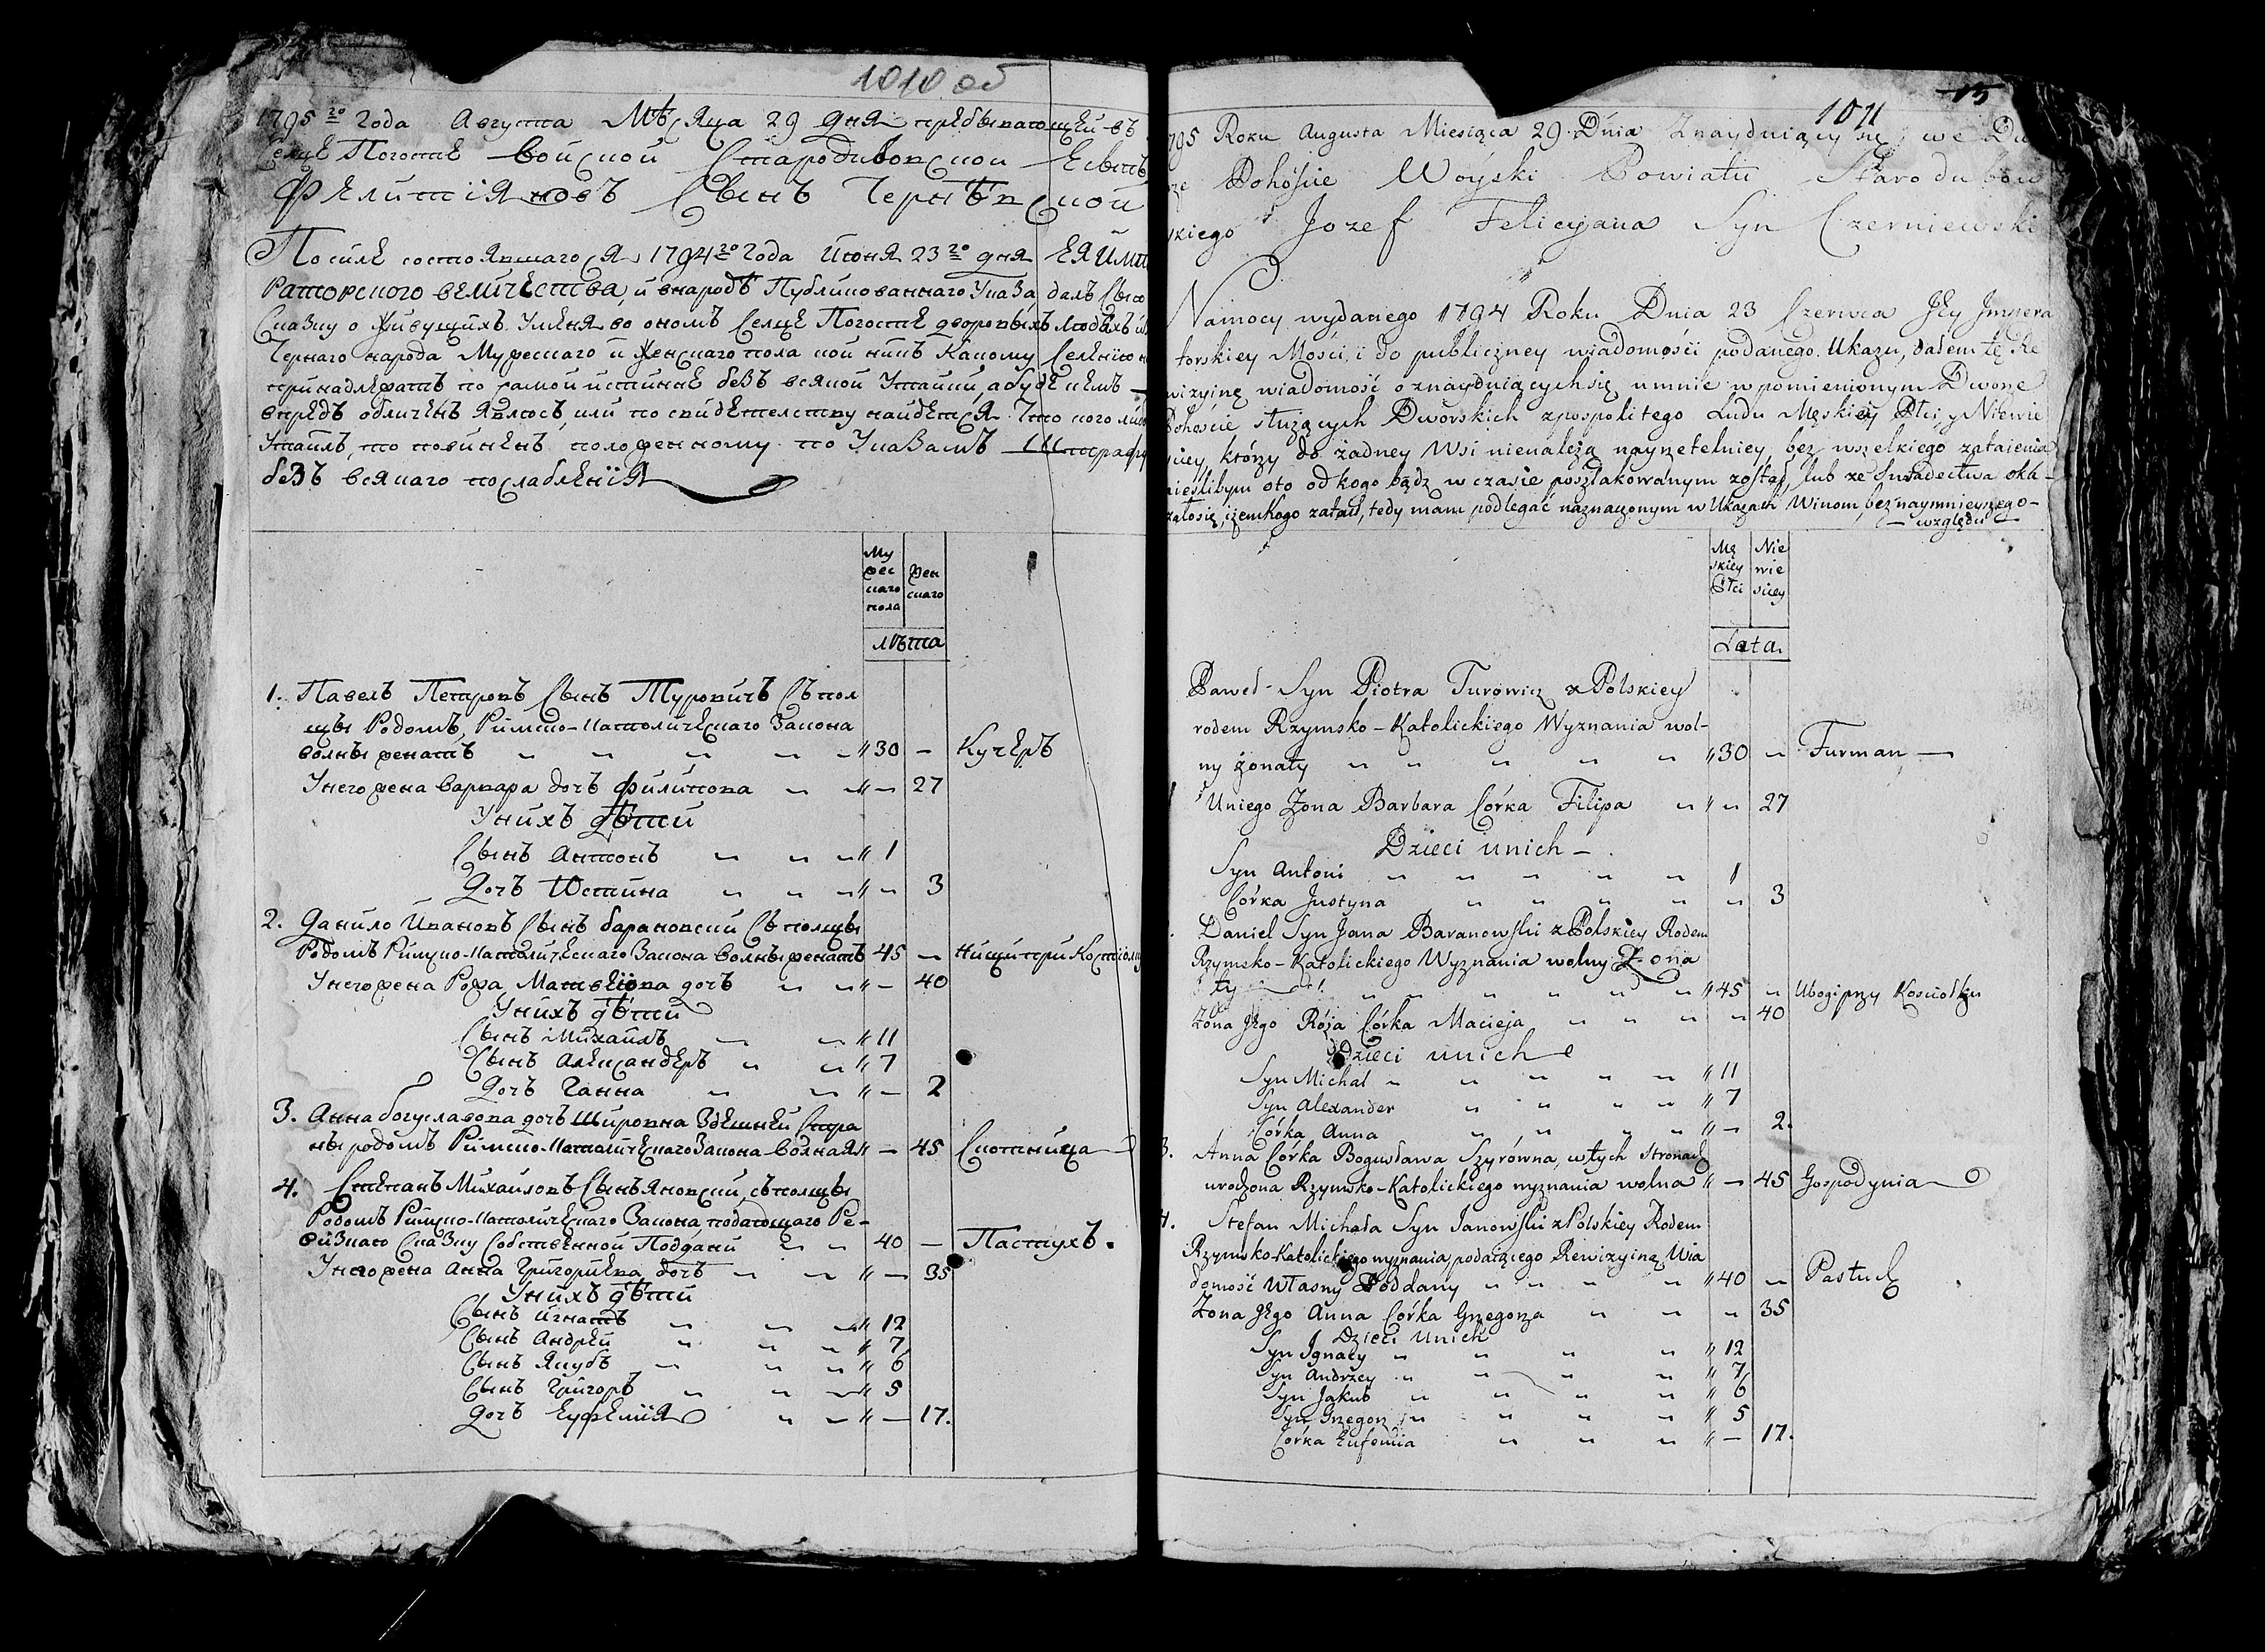 1010 об
1795го Года Августа Мѣсяца 29 дня пребывающей въ
Селце Погостѣ Войской Стародубовской
Фелиціяновъ Сынъ Чернѣвской
По силе состоявшагося 1794го Года Июня 23го дня ЕЯ Импе
раторского величества, и внародъ Публикованнаго Указа, далъ Сию
Сказку о живущихъ Уменя во ономъ Селце Погосте дворовыхъ людяхъ
Чернаго народа Мужескаго и Женскаго пола кои никъ Какому Селению не
принадлежатъ по самой истинне безъ всякой Утайки, а буде кемъ
впредь обличенъ явлюсь, или по свидетелству найдется Что кого либо
Утаилъ, то повиненъ положенному по Указамъ Штрафу
безъ всякаго послабления
Му
жес
каго
пола
жен
скаго
лѣта
1. Павелъ Петровъ Сынъ Туровичъ Съ пол
щы Родомъ, Римско-католическаго Закона
волны женатъ " 30 - Кучеръ
Унего жена Варвара дочъ Филипова " - 27
Унихъ дѣти
Сынъ Антонъ " 1
Дочъ Юстина " - 3
2. Данило Ивановъ Сынъ барановский Съ полщы
Родомъ Римско-католическаго Закона волны женатъ 45 - Нищи при Костіолу
Унего жена Рожа Матвеіова дочъ " - 40
Унихъ дѣти
Сынъ Михаилъ " 11
Сынъ Александеръ " 7
Дочъ Ганна " - 2
3. Анна богуславова дочъ Шировна Здешней Стра
ны родомъ Римско-католическаго Закона волная " - 45 Скотница
4. Степанъ Михаиловъ Сынъ Яновский, съ полщы
Родомъ Римско-католическаго Закона подающаго Ре-
визкаю Сказку Собственной Поддани 40 - Пастухъ.
Унего жена Анна Григориева дочъ " - 35
Унихъ дѣти
Сынъ Игнатъ " 12
Сынъ Андрей " 7
Сынъ Якубъ " 6
Сынъ Григоръ " 5
Дочъ Еуфемія " - 17.
15
1011
1795 Roku Augusta Miesiąca 29 Dnia Znayduiący się we
Pohoście Woyski Powiatu Starodubow
skiego Jozef Felicyana Syn Czerniewski
Namocy wydanego 1794 Roku Dnia 23 Czerwca Jey Impera
torskiey Mości, i do publiczney wiadomości podanego Ukazu, dałem tę Re
wizyinę wiadomość oznayduiącychsię umnie wpomienionym Dworze
Pohoście służących Dworskich zpospolitego Ludu Męskiey Płci y Niewie
ściey, którzy do żadney Wsi nienależą nayrzetelniey, bez wszelkiego zataienia
ieslibym oto od kogo bądz w czasie poszlakowanym został, lub ze Swiadectwa oka-
załosię, iżemkogo zataił, tedy mam podlegać naznaczonym w Ukazach Winom, bez naymnieyszego-
- względu -
Mę
skiey
Płci
Nie
wie
sciey
Lata.
Paweł Syn Piotra Turowicz z Polskiey
rodem Rzymsko-Katolickiego Wyznania wol-
ny żonaty " 30 - Furman -
Uniego Żona Barbara Córka Filipa " 27
Dzieci unich -
Syn Antoni 1
Córka Justyna 3
Daniel Syn Jana Baranowski z Polskiey Rodem
Rzymsko-Katolickiego Wyznania wolny Żona
ty " 45 Ubogi przy Kosciołku
Żona Jego Róża Córka Macieja 40
Dzieci unich
Syn Michał " 11
Syn Alexander " 7
Córka Anna " - 2.
3. Anna Córka Bogusława Szyrówna, wtych Stronach
urodzona Rzymsko-Katolickiego wyznania wolna " - 45 Gospodynia
4. Stefan Michała Syn Janowski z Polskiey Rodem
Rzymsko-Katolickiego wyznania, podaiącego Rewizyiną Wia
domość Własny Poddany " 40 Pastuch
Żona Jego Anna Córka Grzegorza 35
Dzieci unich
Syn Ignacy " 12
Syn Andrzey " 7
Syn Jakub " 6
Syn Grzegorz " 5
Córka Eufemia " - 17.